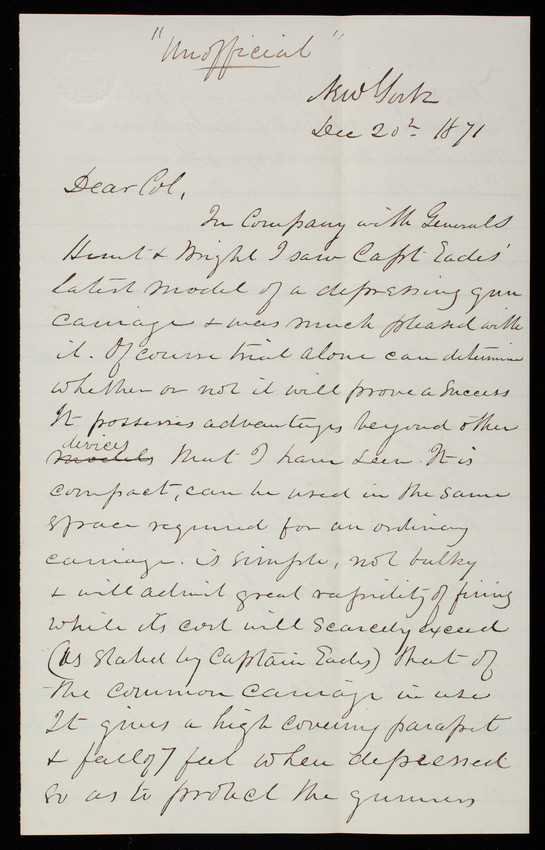 "Unofficial"
New York
Dec 20th 1871
Dear Col,
In Company with Generals
Hunt & Wright I saw Capt Eades'
latest model of a depressing gun
carriage & was much pleased with
it. Of course trial alone can determine
whether or not it will prove a success
It possesses advantages beyond other
devices
models that I have seen. It is
compact, can be used in the same
space required for an ordinary
carriage. is simple, not bulky
& will admit great rapidity of firing
while its cost will scarcely exceed
(as stated by Captain Eades) that of
the common carriage in use
It gives a high covering parapet
& fall of 7 feet when depressed
so as to protect the gunners